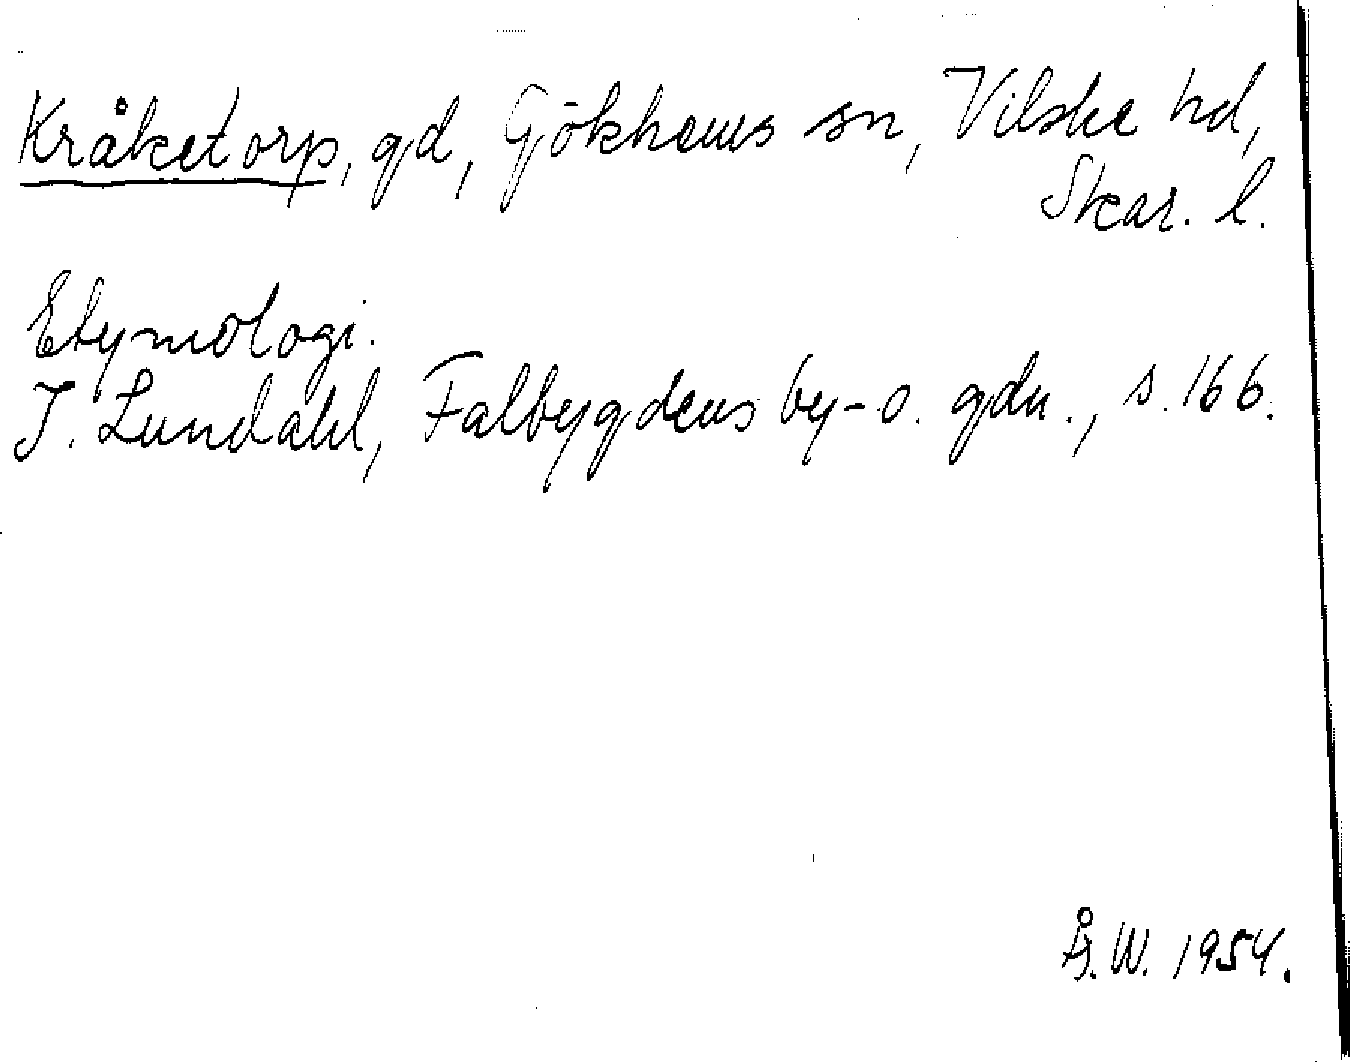 Kråketorp, gd, Gökhems sn, Vilske hd,
Skar. l.
Etymologi.
I. Lundahl, Falbygdens by- o. gdn., s. 166.
Å. W. 1954.